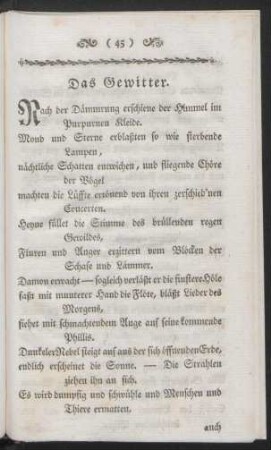 ( 45 )
Das Gewitter.
Nach der Dämmrung erschiene der Himmel im
Purpurnen Kleide.
Mond und Sterne erblaßten so wie sterbende
Lampen,
nächtliche Schatten entwichen, und fliegende Chöre
der Vögel
machten die Lüffte ertönend von ihren zerschied'nen
Concerten.
Heyne füllet die Stimme des brüllenden regen
Gewildes,
Fluren und Anger erzittern vom Blöcken der
Schafe und Lämmer.
Damon erwacht — sogleich verläßt er die finstere Höle
faßt mit munterer Hand die Flöte, bläßt Lieder des
Morgens,
siehet mit schmachtendem Auge auf seine kommende
Phillis.
Dunkeler Nebel steigt auf aus der sich öffnenden Erde,
endlich erscheinet die Sonne. — Die Strahlen
ziehen ihn an sich.
Es wird dumpfig und schwühle und Menschen und
Thiere ermatten.
auch